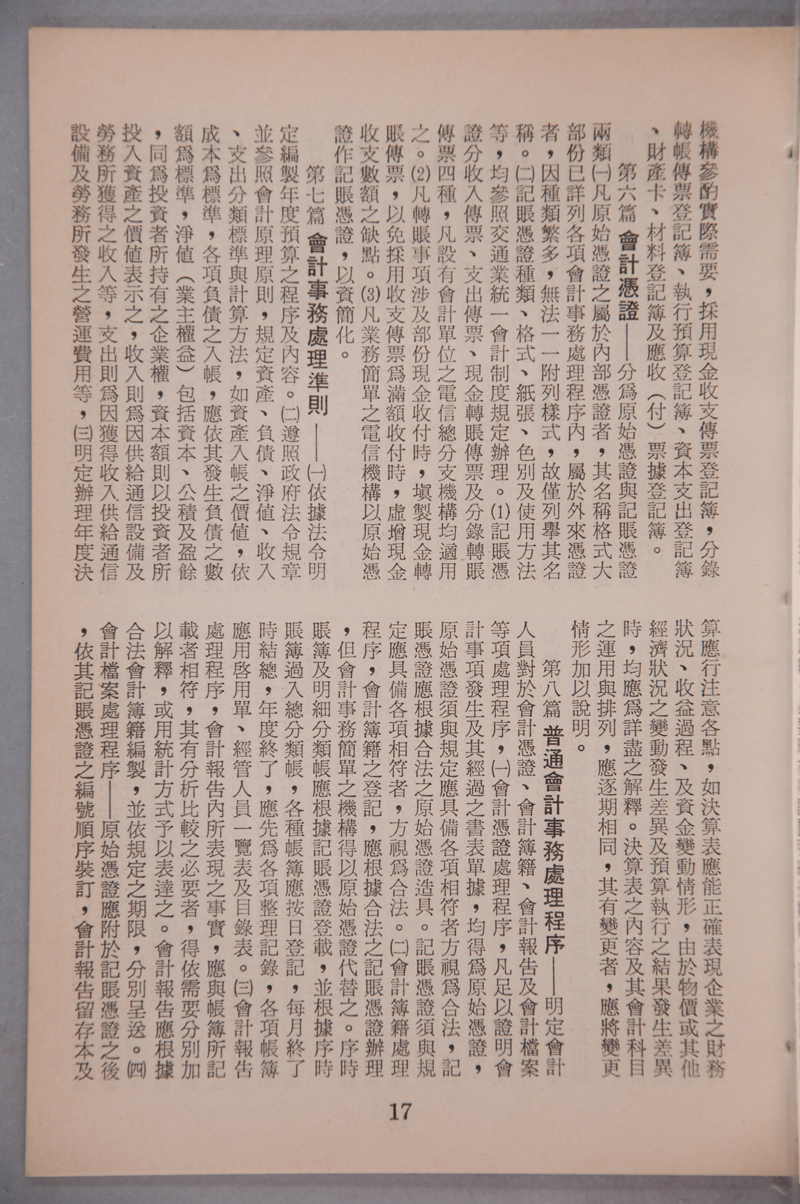 機構參酌實際需要，採用現金收支傳票登記簿，分錄
轉帳傳票登記簿、執行預算登記簿、資本支出登記簿
、財產卡、材料登記簿及應收（付）票據登記簿。
第六篇 會計憑證——分爲原始憑證與記賬憑證
兩類㈠凡原始憑證之屬於內部憑證者，其名稱格式大
部份已詳列各項會計事務處理程序內，屬於外來憑證
者，因種類繁多，無法一一附列樣式，故僅列舉其名
稱。㈡記賬憑證種類、格式、紙張、色別及使用方法
等，均參照交通業統一會計制度規定辦理。⑴記賬憑
證分收入傳票、支出傳票、現金轉賬傳票及分錄轉賬
傳票四種，凡設有會計單位之電信總分支機構均適用
之。⑵凡轉賬事項涉及部份現金收付時，塡製現金轉
賬傳票，以免採用收支傳票爲滿額收付時，虛增現金
收支數額之缺點。⑶凡業務簡單之電信機構以原始憑
證作記賬憑證，以資簡化。
第七篇 會計事務處理準則——㈠依據法令明
定編製年度預算之程序及內容。㈡遵照政府法令規章
並參照會計原理原則，規定資產、負債、淨值、收入
、支出分類標準與計算方法，如資產入帳之價值，依
成本爲標準，各項負債之入帳，應依其發生負債之數
額爲標準，淨値（業主權益）包括資本、公積及盈餘
，同爲投資者所持有之企業權，資本額則以投資者所
投入資產之價值表示之，收入則爲因供給通信設備及
勞務所獲得之收入等，支出則爲因獲得收入供給通信
設備及勞務所發生之營運費用等，㈢明定辦理年度決
算應行注意各點，如決算表應能正確表現企業之財務
狀況、收益過程、及資金變動情形，由於物價或其他
經濟狀況之變動發生差異及預算執行之結果發生差異
時，均應爲詳盡之解釋。決算表之內容及其會計科目
之運用與排列，應逐期相同，其有變更者，應將變更
情形加以說明。
第八篇 普通會計事務處理程序——明定會計
人員對於會計憑證、會計簿籍、會計報告及會計檔案
等項處理程序，㈠會計憑證處理程序，凡足以證明會
計事項發生及其經過之書表單據，均得爲原始憑證，
原始憑證須與規定應具備各項相符者方視爲合法，記
賬憑證應根據合法之原始憑證造具。記賬憑證須與規
定應具備各項相符者，方視爲合法。㈡會計簿籍處理
程序，會計簿籍之登記，應根據合法之記賬憑證辦理
，但會計事務簡單之機構得以原始憑證代替之。序時
賬簿及明細分類帳應根據記賬憑證登載，並根據序時
賬簿過入總分類帳，各種帳簿應按日登記，每月終了
時結總，年度終了，應先爲各項整理記錄，各項帳簿
應用啓用單、經管人員一覽表及目錄表。㈢會計報告
處理程序，會計報告內所表現之事實，應與帳簿所記
載者相符，其有分析比較之必要者，得依需要分別加
以解釋，或用統計方式予以表達之。會計報告應根據
合法會計簿籍編製，並依規定之期限，分別呈送。㈣
會計檔案處理程序——原始憑證應附於記賬憑證之後
，依其記賬憑證之編號順序裝訂，會計報告留存本及
17